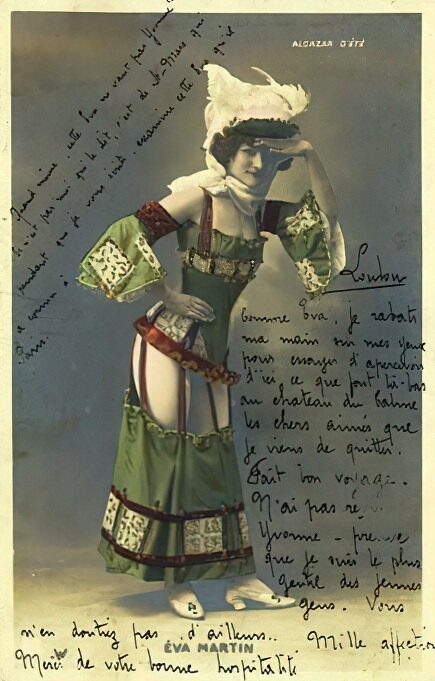 ALCAZAR D'ÉTÉ
Quand même, cette Eva ne vaut pas Yvonne
Ce n'est pas moi qui le dit, c'est de St-Mars qui
pendant que je vous écris examine cette Eva qu'il
a connue à
Paris.
Loulou
Comme Eva, je rabats
ma main sur mes yeux
pour essayer d'apercevoir
d'ici, ce que font là-bas
au chateau du Calme
les chers aimés que
je viens de quitter.
Fait bon voyage.
N'ai pas
Yvonne - preuve
que je suis le plus
gentil des jeunes
gens. Vous
n'en doutez pas, d'ailleurs..
Mille affection
Merci de votre bonne hospitalité
ÉVA MARTIN